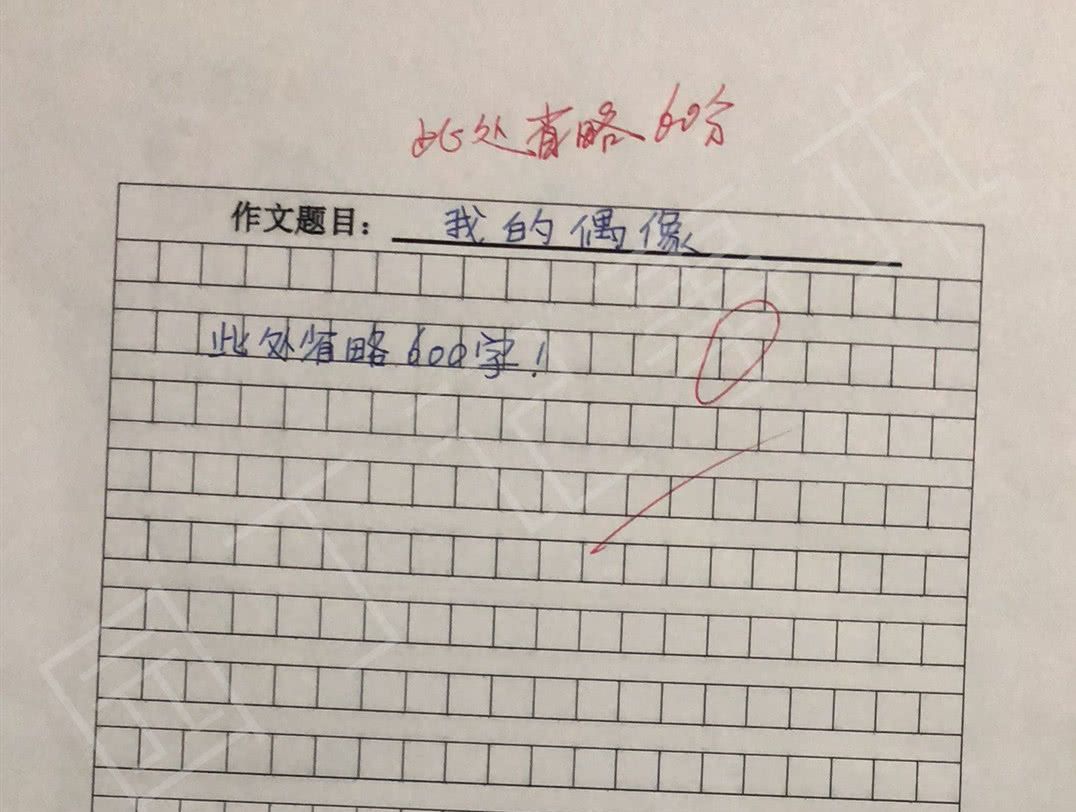 此处省略60分
作文题目： 我的偶像
此处省略600字！